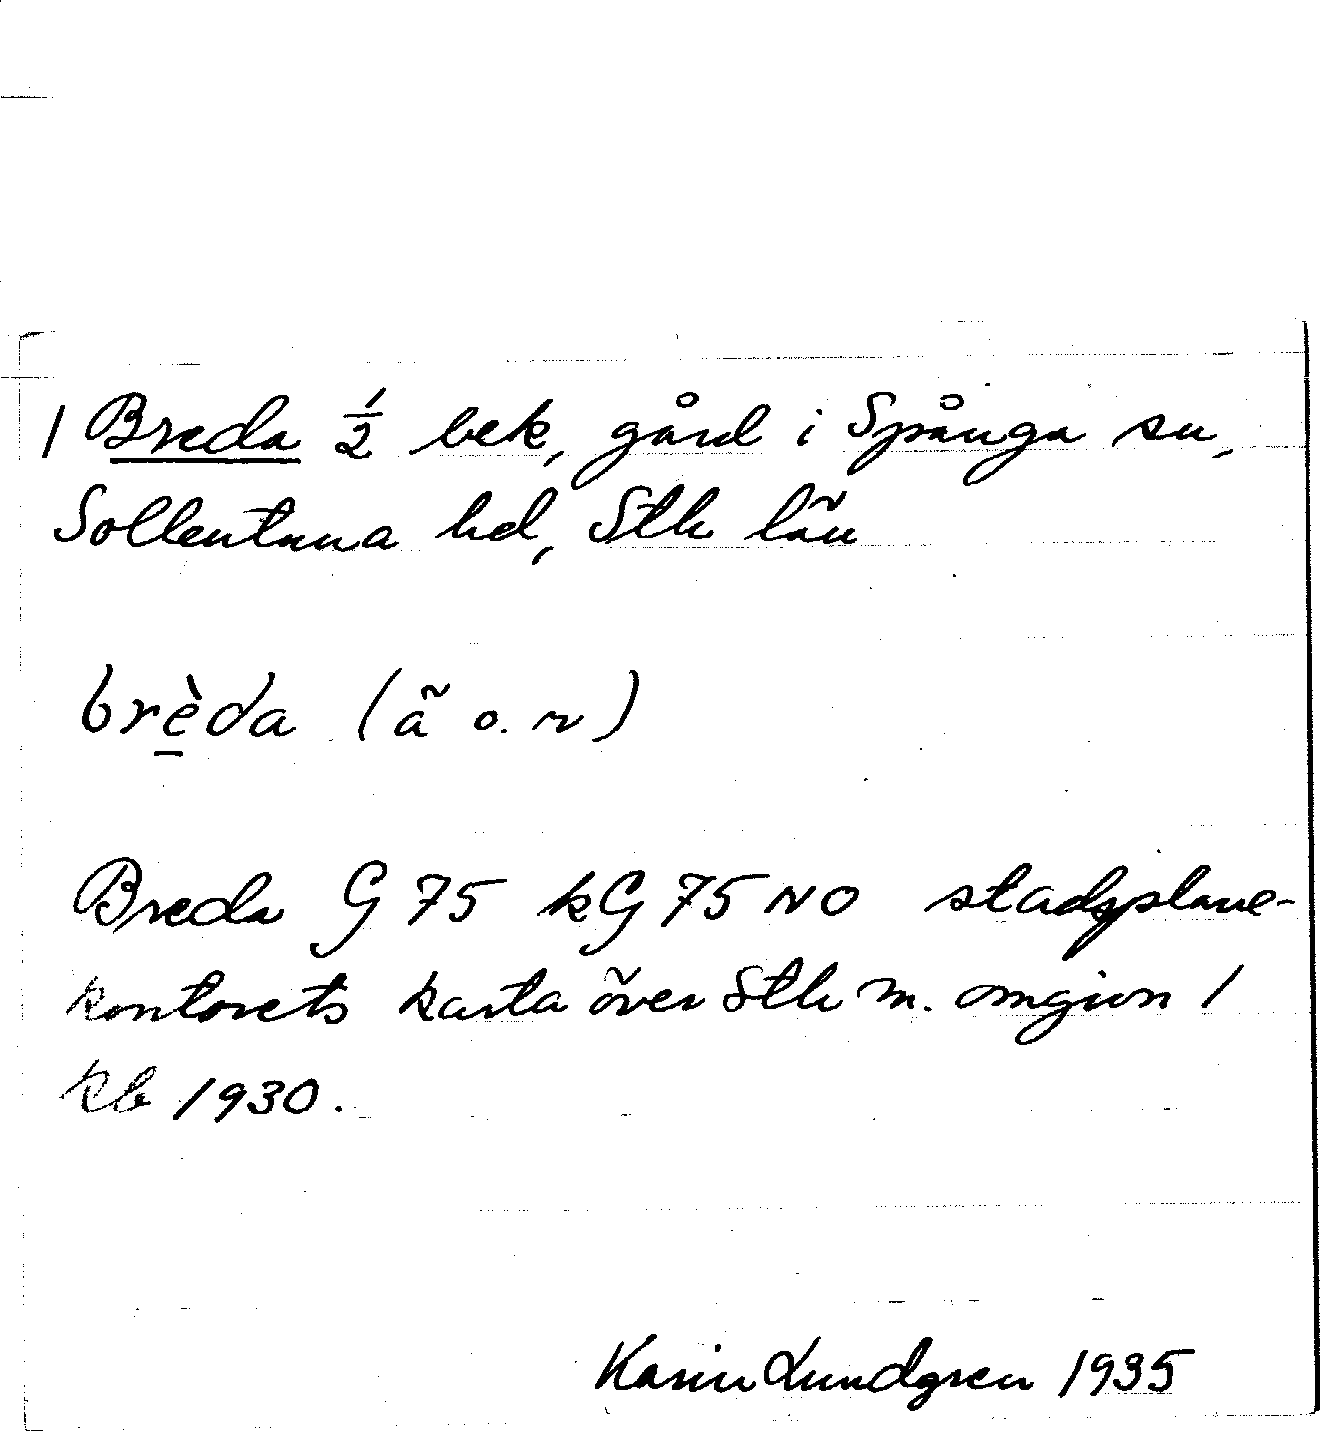 1 Breda ½ bek, gård i Spånga sn,
Sollentuna hd, Sth län
brèda (ä o. n)
Breda G 75 kG 75 NO stadsplane-
kontorets karta över Sth m. omgivn 1
kb 1930.
Karin Lundgren 1935